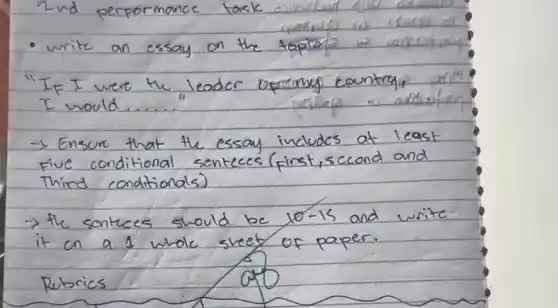 2nd performance task
• write an essay on the topic
"If I were the leader of my country,
I would......."
→ Ensure that the essay includes at least
five conditional senteces (first, second and
Third conditionals)
→ the senteces should be 10-15 and write
it on a 1 whole sheet of paper.
Rubrics